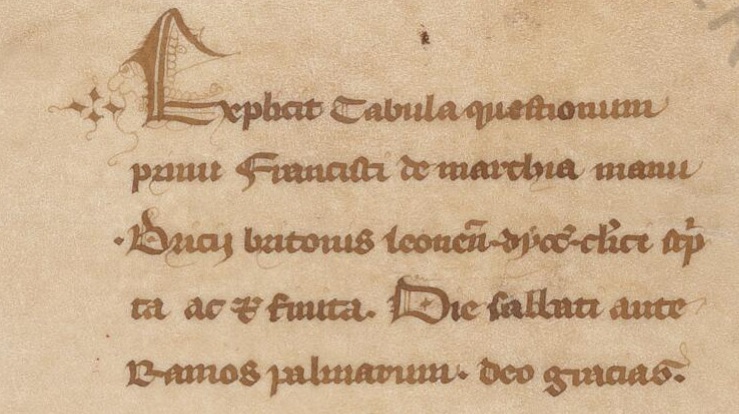 Explicit Tabula questionum
primi Francisci de marchia manu
·Bricij britonis leonen̄·dyoc̄·cl'ici sc̓p
ta ac ⁊ finita. Die sabbati ante
Ramos palmarum. deo gracias.